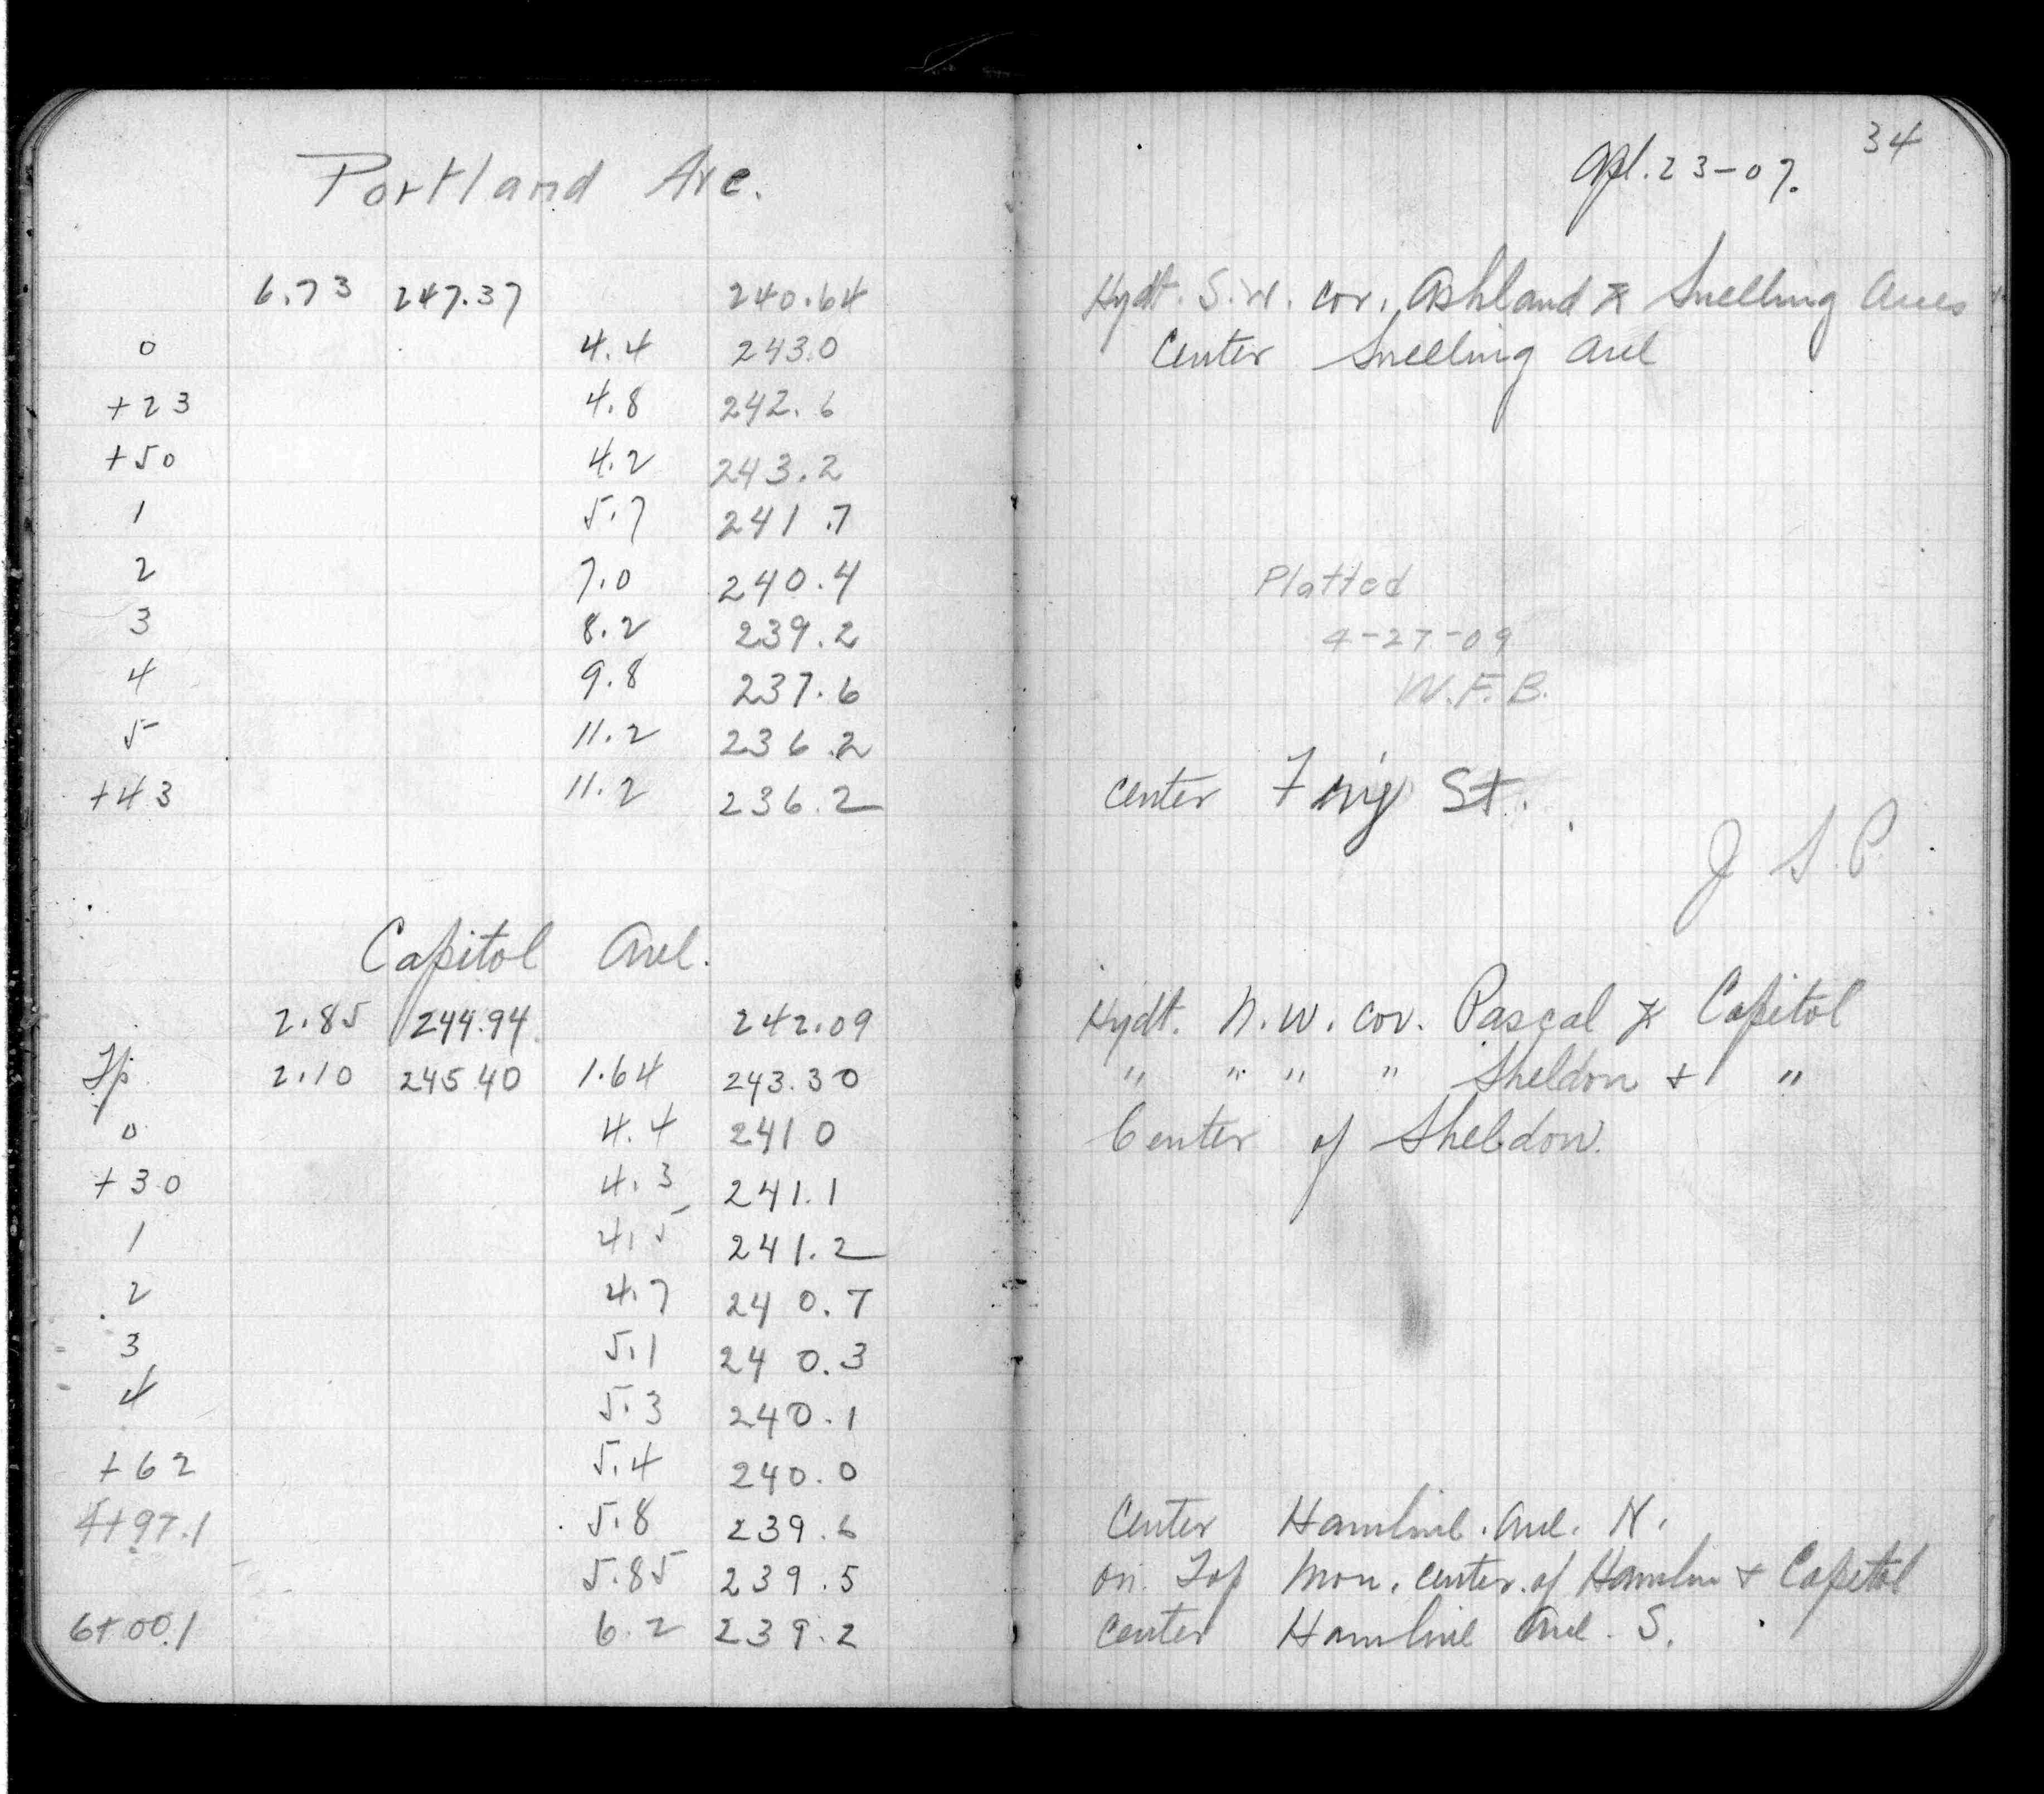 Portland Ave.
6.73 247.37 240.64
0 4.4 243.0
+23 4.8 242.6
+50 4.2 243.2
1 5.7 241.7
2 7.0 240.4
3 8.2 239.2
4 9.8 237.6
5 11.2 236.2
+43 11.2 236.2
Capitol Ave.
2.85 244.94 242.09
Tp. 2.10 245.40 1.64 243.30
0 4.4 241 0
+30 4.3 241.1
1 4.5 241.2
2 4.7 240.7
3 5.1 240.3
4 5.3 240.1
+62 5.4 240.0
4+97.1 5.8 239.6
5.85 239.5
6+00.1 6.2 239.2
34
Apl. 23-07.
Hydt. S.W. cor. Ashland & Snelling Aves
Center Snelling Ave
Platted
4-27-09
W.F.B.
center St.
J S. P.
Hydt. N.W. cor. Pascal & Capitol
" " " " Sheldon + "
Center of Sheldon.
Center Hamline. Ave. N.
on Top Mon. center of Hamlin + Capitol
center Hamline Ave. S.